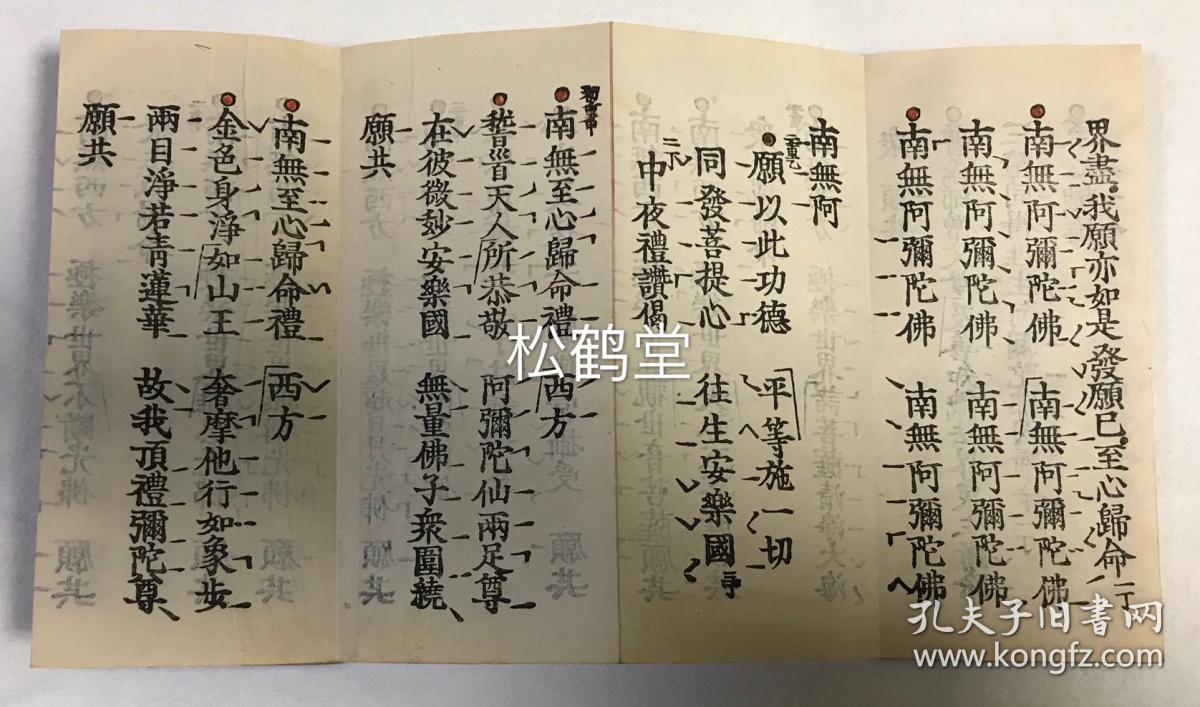 界盡。我願亦如是發願已。至心歸命
南無阿彌陀佛　南無阿彌陀佛
南無阿彌陀佛　南無阿彌陀佛
南無阿彌陀佛　南無阿彌陀佛
南無阿
願以此功德　平等施一切
同發菩提心　往生安樂國
中夜禮讚偈
南無至心歸命禮　西方
稽首天人所恭敬　阿彌陀仙兩足尊
在彼微玅安樂國　無量佛子衆圍繞
願共
南無至心歸命禮　西方
金色身淨如山王　奢摩他行如象步
兩目淨若靑蓮華　故我頂禮彌陀尊
願共
松鹤堂
孔夫子旧书网
www.kongfz.com